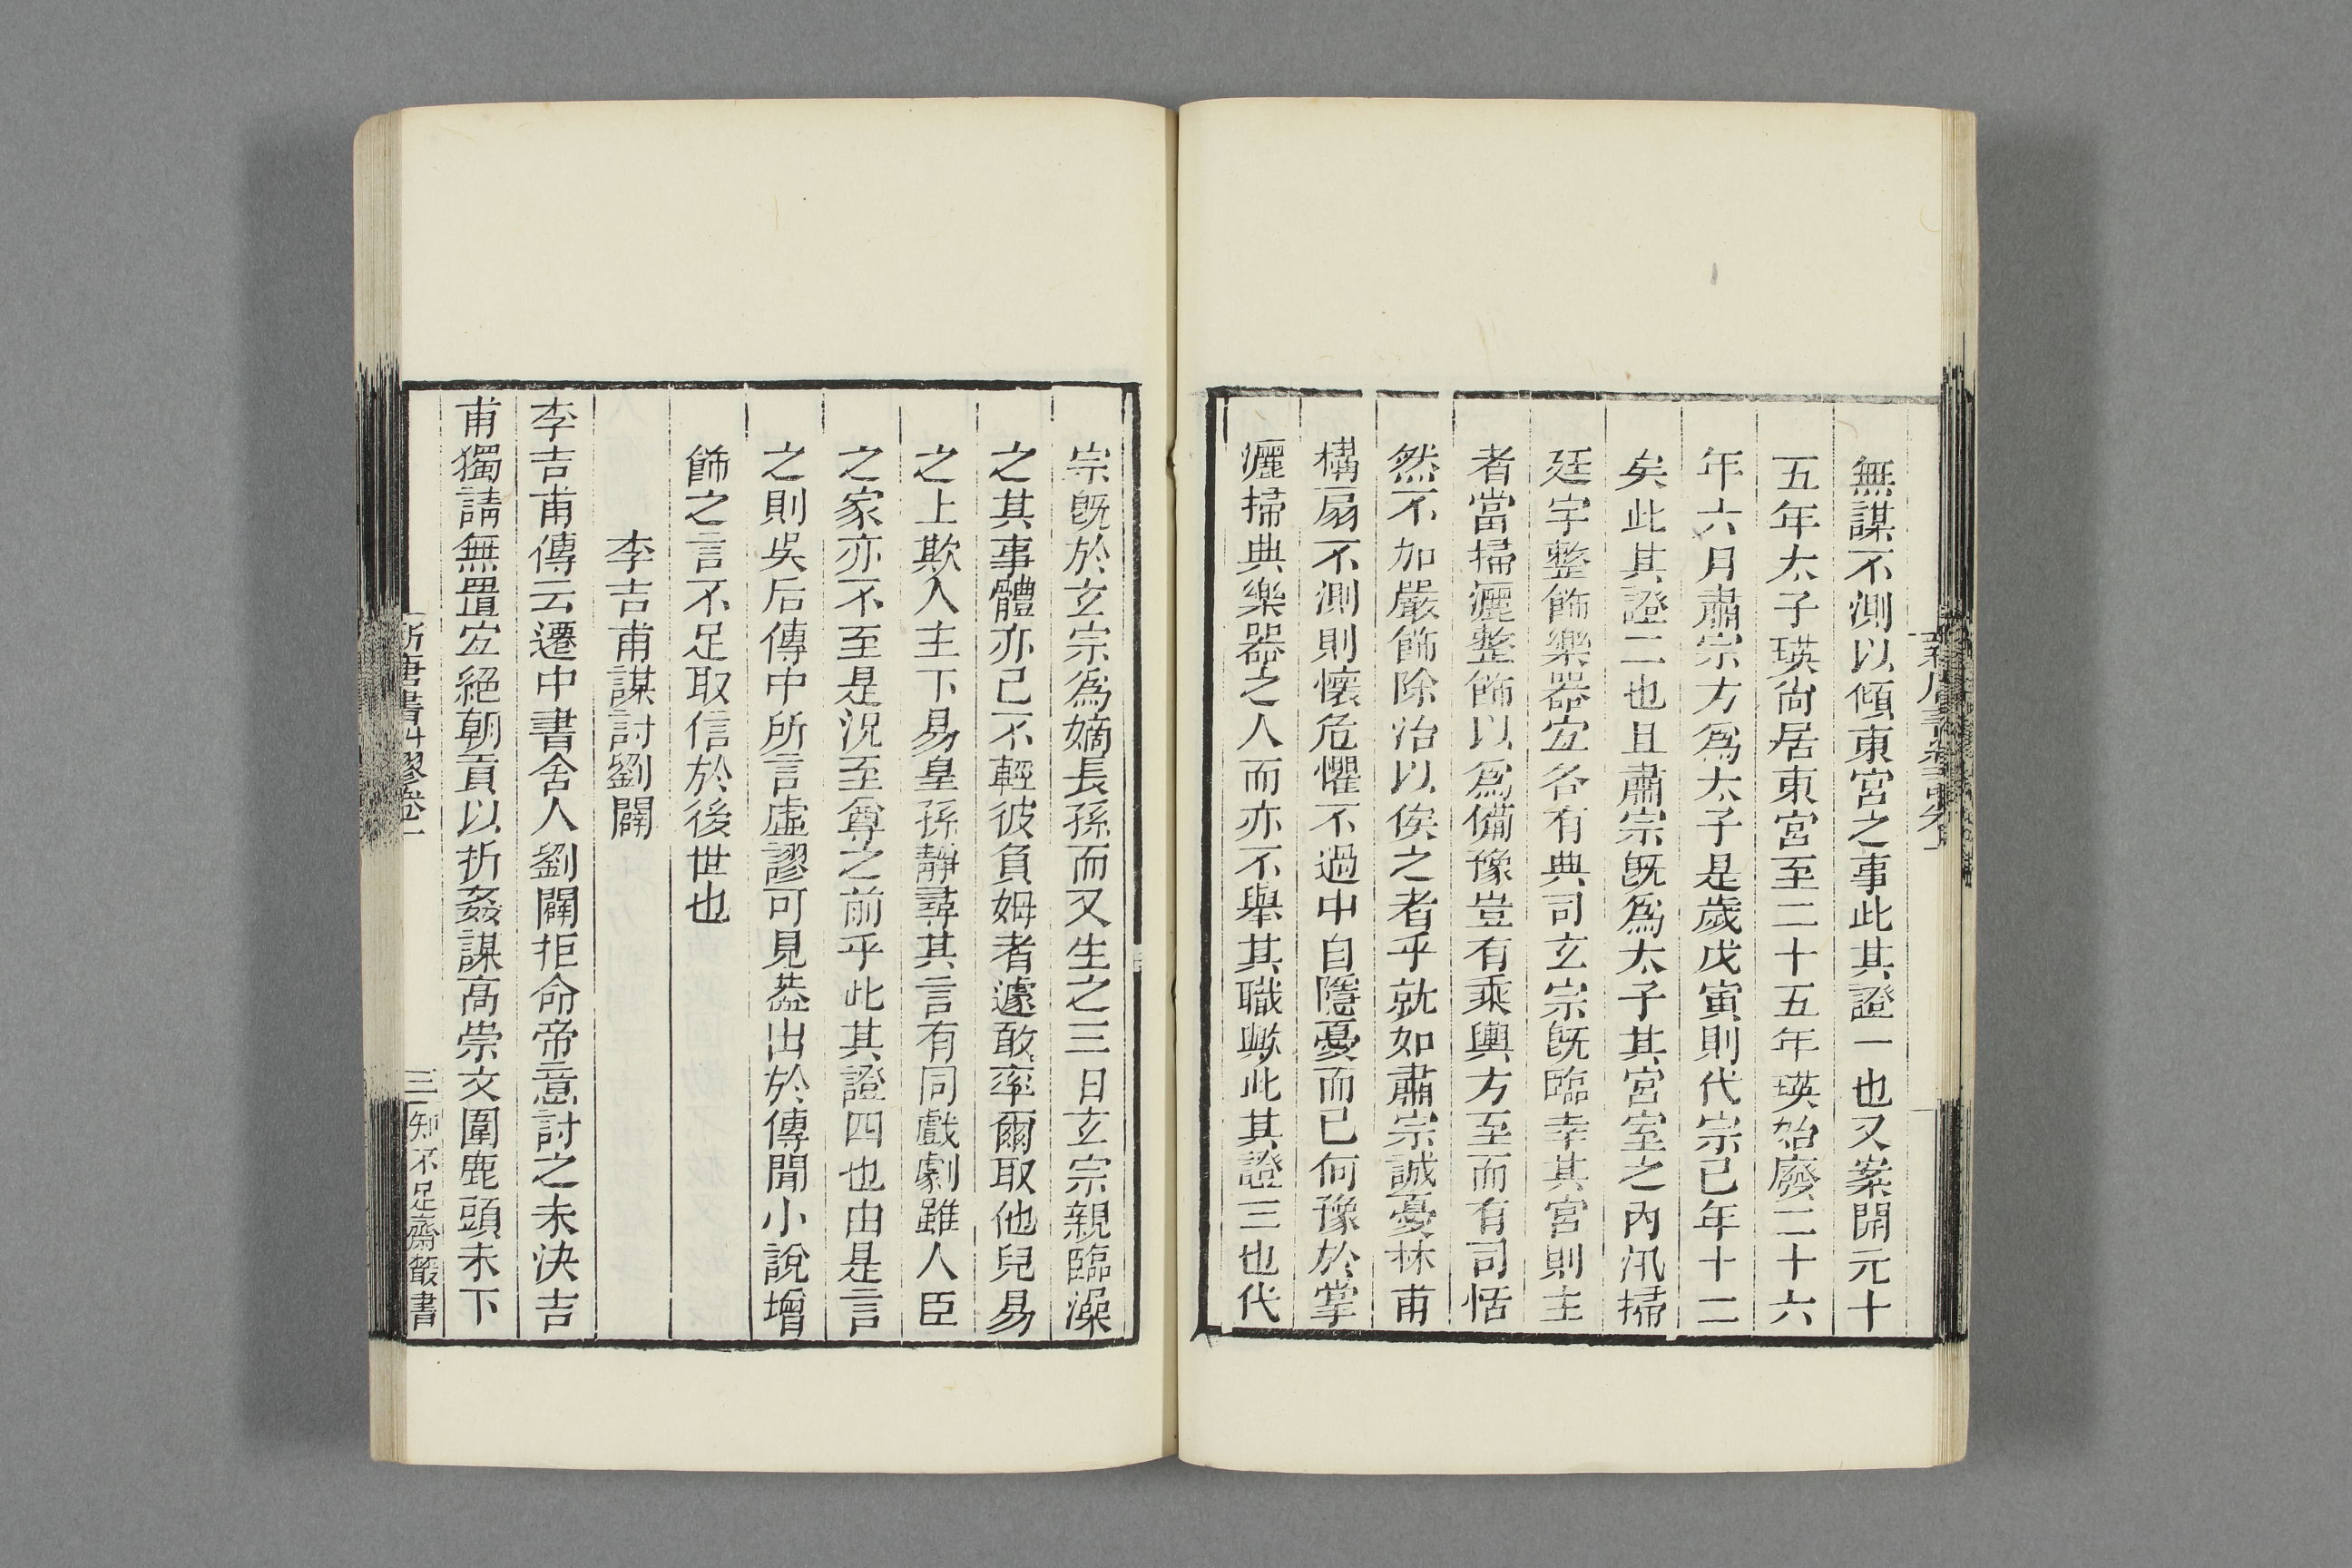 無謀不測以傾東宮之事此其證一也又案開元十
五年太子瑛尙居東宮至二十五年瑛始廢二十六
年六月肅宗方爲太子是歲戊寅則代宗已年十二
矣此其證二也且肅宗旣爲太子其宮室之內汛掃
廷宇整飾樂器宐各有典司玄宗旣臨幸其宮則主
者當掃灑整飾以爲備豫豈有乘輿方至而有司恬
然不加嚴飾除治以俟之者乎就如肅宗誠憂林甫
構扇不測則懷危懼不過中自隱憂而已何豫於掌
灑掃典樂器之人而亦不舉其職歟此其證三也代
宗旣於玄宗爲嫡長孫而又生之三日玄宗親臨澡
之其事體亦已不輕彼負姆者遽敢率爾取他兒易
之上欺人主下易皇孫靜尋其言有同戲劇雖人臣
之家亦不至是況至尊之前乎此其證四也由是言
之則吳后傳中所言虛謬可見葢出於傳聞小說增
飾之言不足取信於後世也
李吉甫謀討劉闢
李吉甫傳云遷中書舍人劉闢拒命帝意討之未決吉
甫獨請無置宐絕朝貢以折姦謀高崇文圍鹿頭未下
新唐書糾謬卷一
三
知不足齋叢書